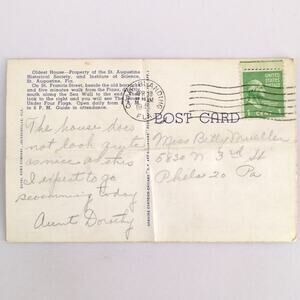 Oldest House—Property of the St. Augustine
Historical Society, and Institute of Science
St. Augustine, Fla.
On St. Francis Street, beside the old
and five minutes walk from the Plaza,
south along the Sea Wall to the end
look to the right and you will see The
Under Four Flags. Open daily from
to 6 P. M. Guide in attendance.
POST CARD
The house does
not look quite
as nice as this
I expect to go
swimming today
Aunt Dorothy
Miss Betty Mueller
5830 N 3rd St
Phela 20 Pa
1 CENT